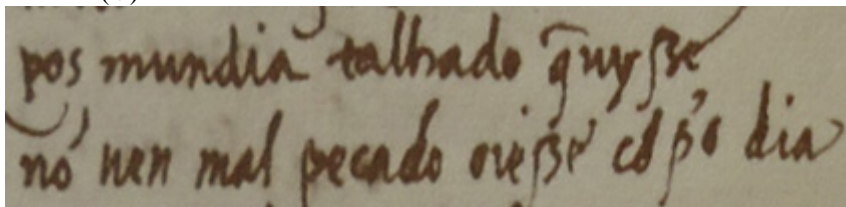 pos mundia talhado q̃uysse
nõ uen mal pecado oiesse cd p̃o dia